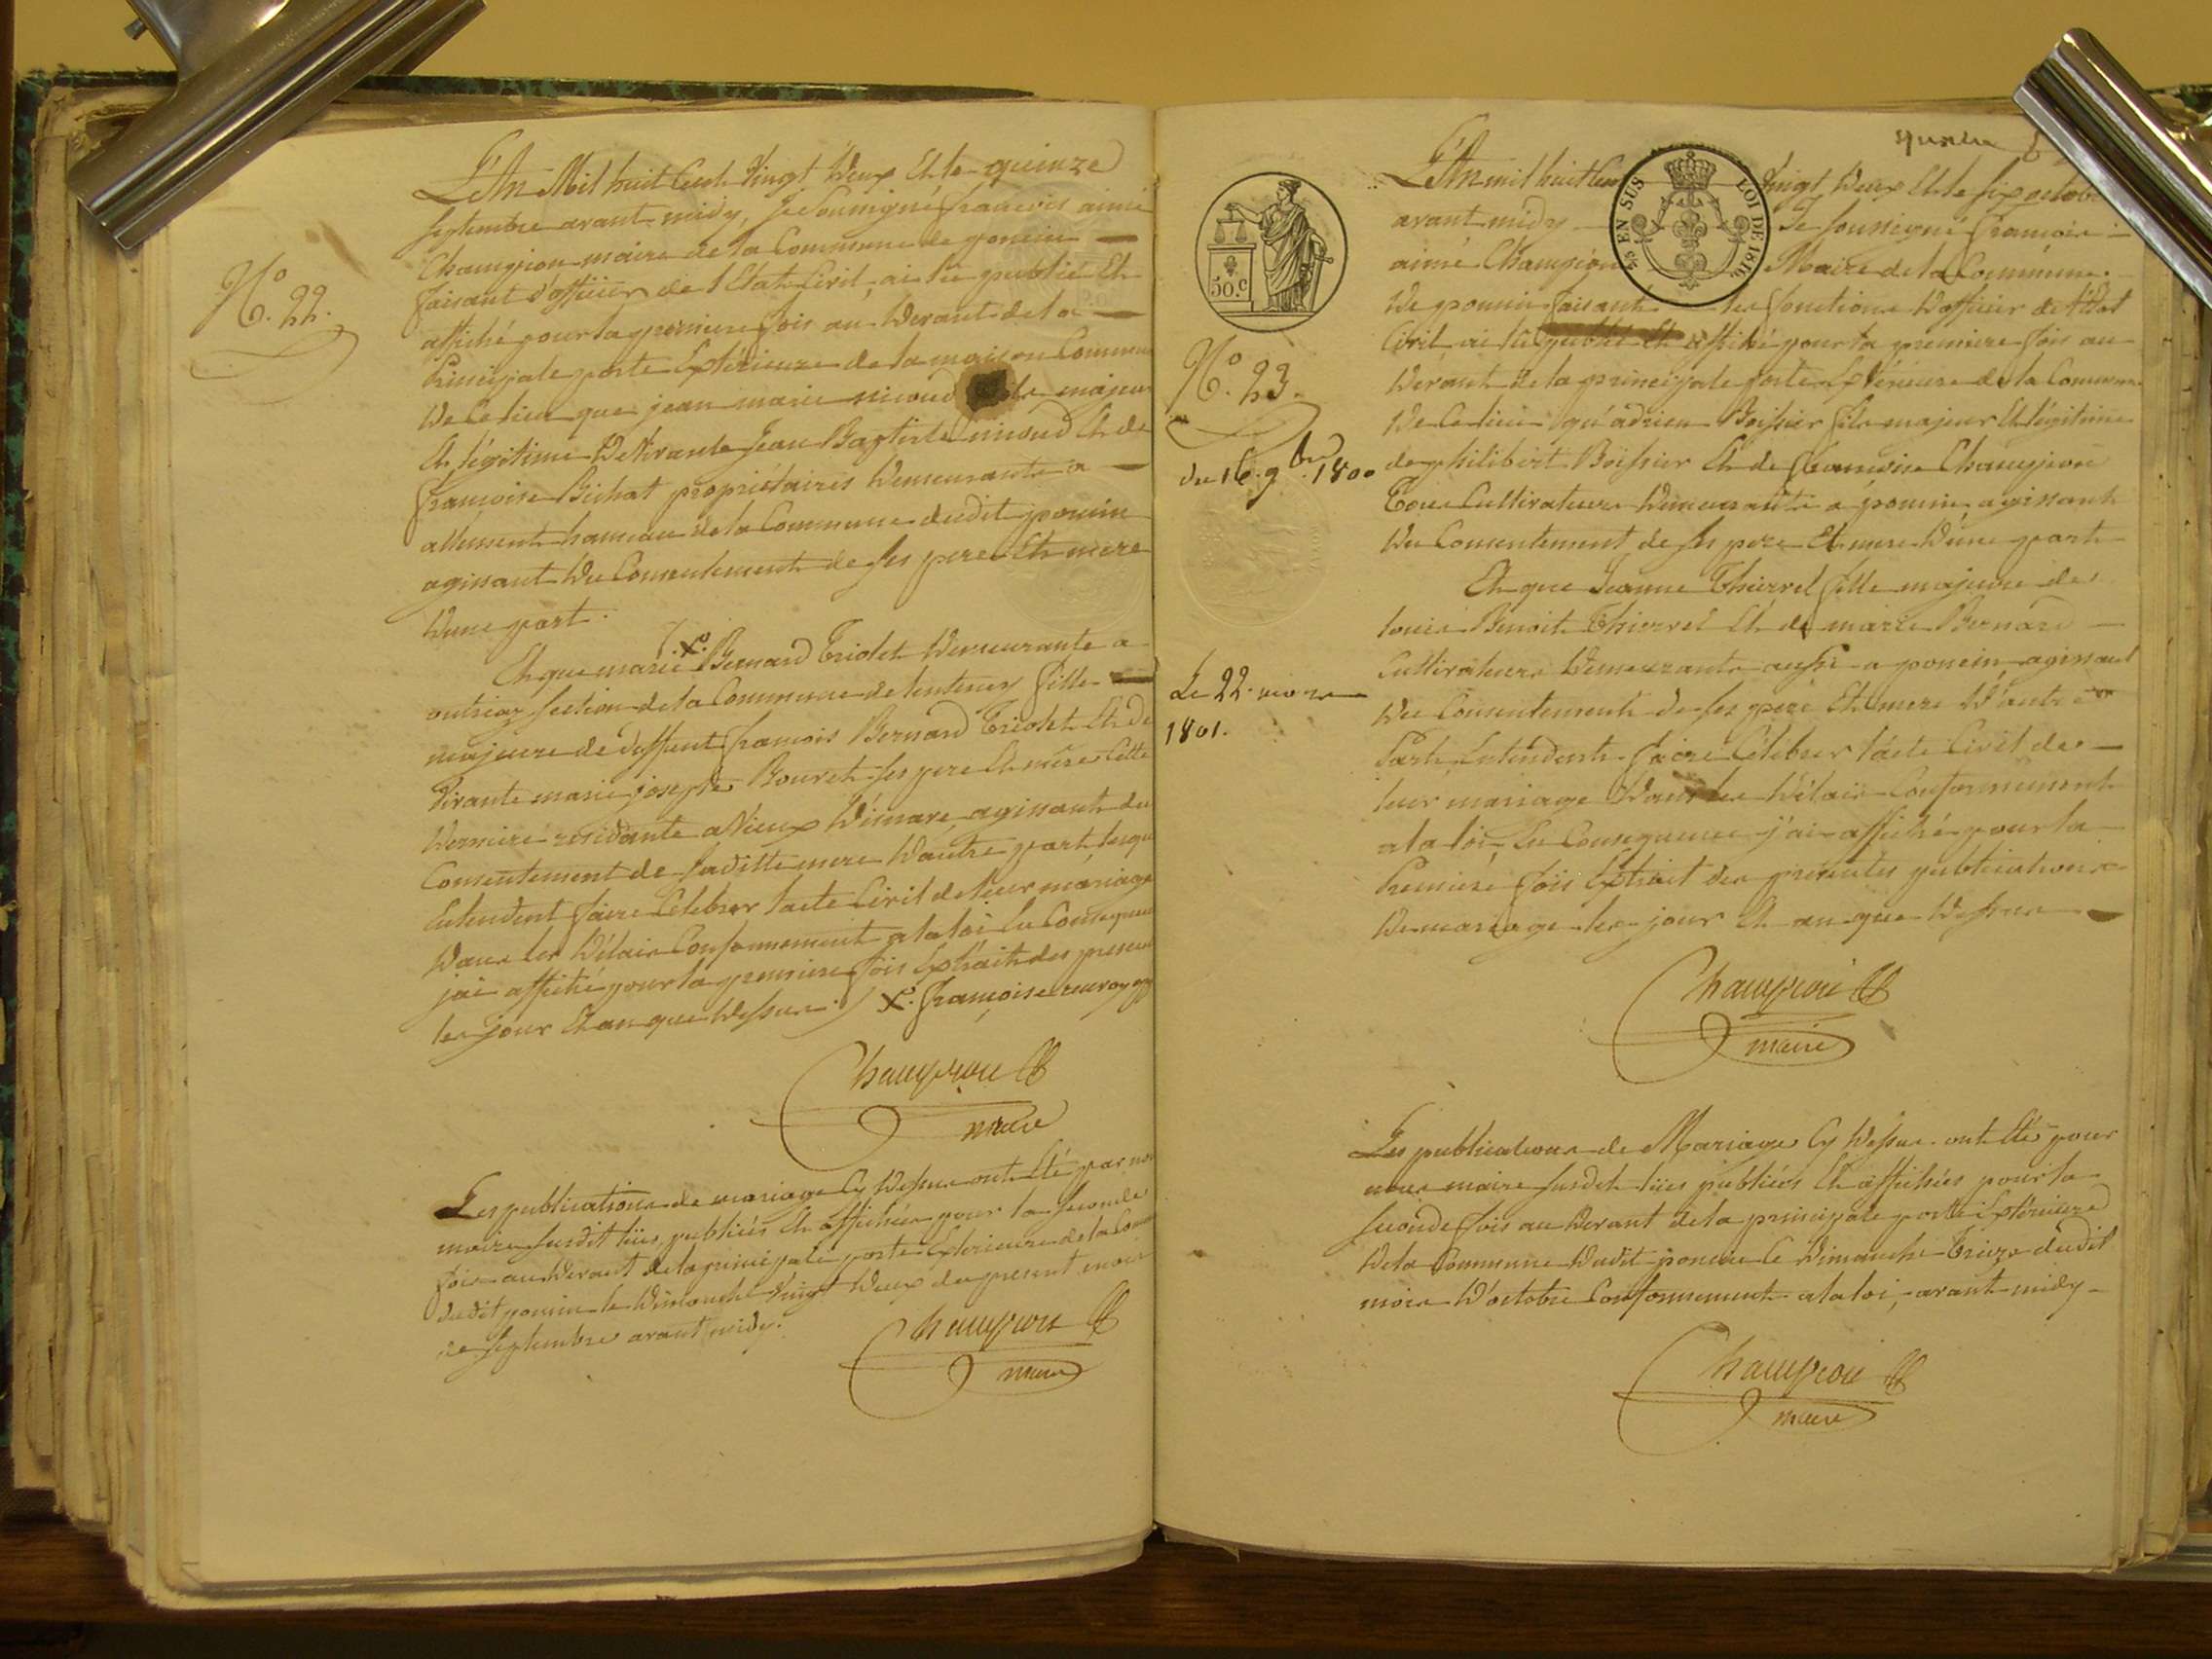 L'An Mil huit Cent Vingt Deux Et le quinze
Septembre avant midy, Je Soussigné françois aimé
Champion maire de la Commune de poncin
faisant d'officier de l'Etat Civil, ai lu publié Et
affiché pour la premiere fois au Devant de la
Principale porte Extérieure de la maison Commune
De Ce lieu que jean marie nicoud fils majeur
Et légitime De Vivants Jean Baptiste nicoud Et de
françoise Bichat propriétaires Demeurants a
allement hameau de la Commune dudit poncin
agissant Du Consentement de Ses pere Et mere
D'une part.
Et que marie X. Bernard Triolet Demeurante a
outriaz section de la Commune de lantenay fille
majeure de deffunt françois Bernard Triolet Et de
Vivante marie josephe Bouvet ses pere Et mere Cette
Derniere residante a Vieux D'izenave agissant du
Consentement de Saditte mere D'autre part, lesque
Entendent faire Celebrer l'acte Civil de leur mariage
Dans les Délais Conformement a la loi En Conséquence
j'ai affiché pour la premiere fois Extrait des present
les jour Et an que Dessus. X. françoise
Champion
maire
Les publications de mariage Cy Dessus ont Eté par nous
maire susdit lües, publiées Et affichées pour la seconde
fois au Devant de la principale porte Exterieure de la Com
dudit poncin le Dimanche Vingt Deux du present mois
de Septembre avant midy.
Champion
maire
N.º 22.
L'An mil huit Cent Vingt Deux Et le six octobre
avant midy Je soussigné françois
aimé Champion Maire de la Commune
De poncin faisant les fonctions D'officier de l'Etat
Civil ai lu publié Et affiché pour la premiere fois au
Devant de la principale porte Extérieure de la Commune
De Ce lieu qu'adrien Boissier fils majeur Et légitime
de philibert Boissier Et de françoise Champion
Tous Cultivateurs Demeurants a poncin, agissant
Du Consentement de Ses pere Et mere D'une part
Et que Jeanne Thievvel fille majeure de
louis Benoit Thievvel Et de marie Bernard
Cultivateurs Demeurants aussi a poncin agissant
Du Consentement de ses pere Et mere D'autre
Part Entendants faire Celebrer l'acte Civil de
leur mariage Dans les Délais Conformement
a la loi, En Consequence j'ai affiché pour la
Premiere fois Extrait des présentes publications
De mariage les jour Et an que Dessus
Champion
maire
Les publications de Mariage Cy Dessus ont Eté pour
nous maire susdit lües publiées Et affichées pour la
seconde fois au Devant de la principale porte Extérieure
De la Commune Dudit poncin le Dimanche Treize dudit
mois D'octobre Conformement a la loi, avant midy
Champion
maire
N.º 23.
du 16. 9bre. 1800
Le 22. mars
1801.
50.c
EN SUS
LOI DE 1816.